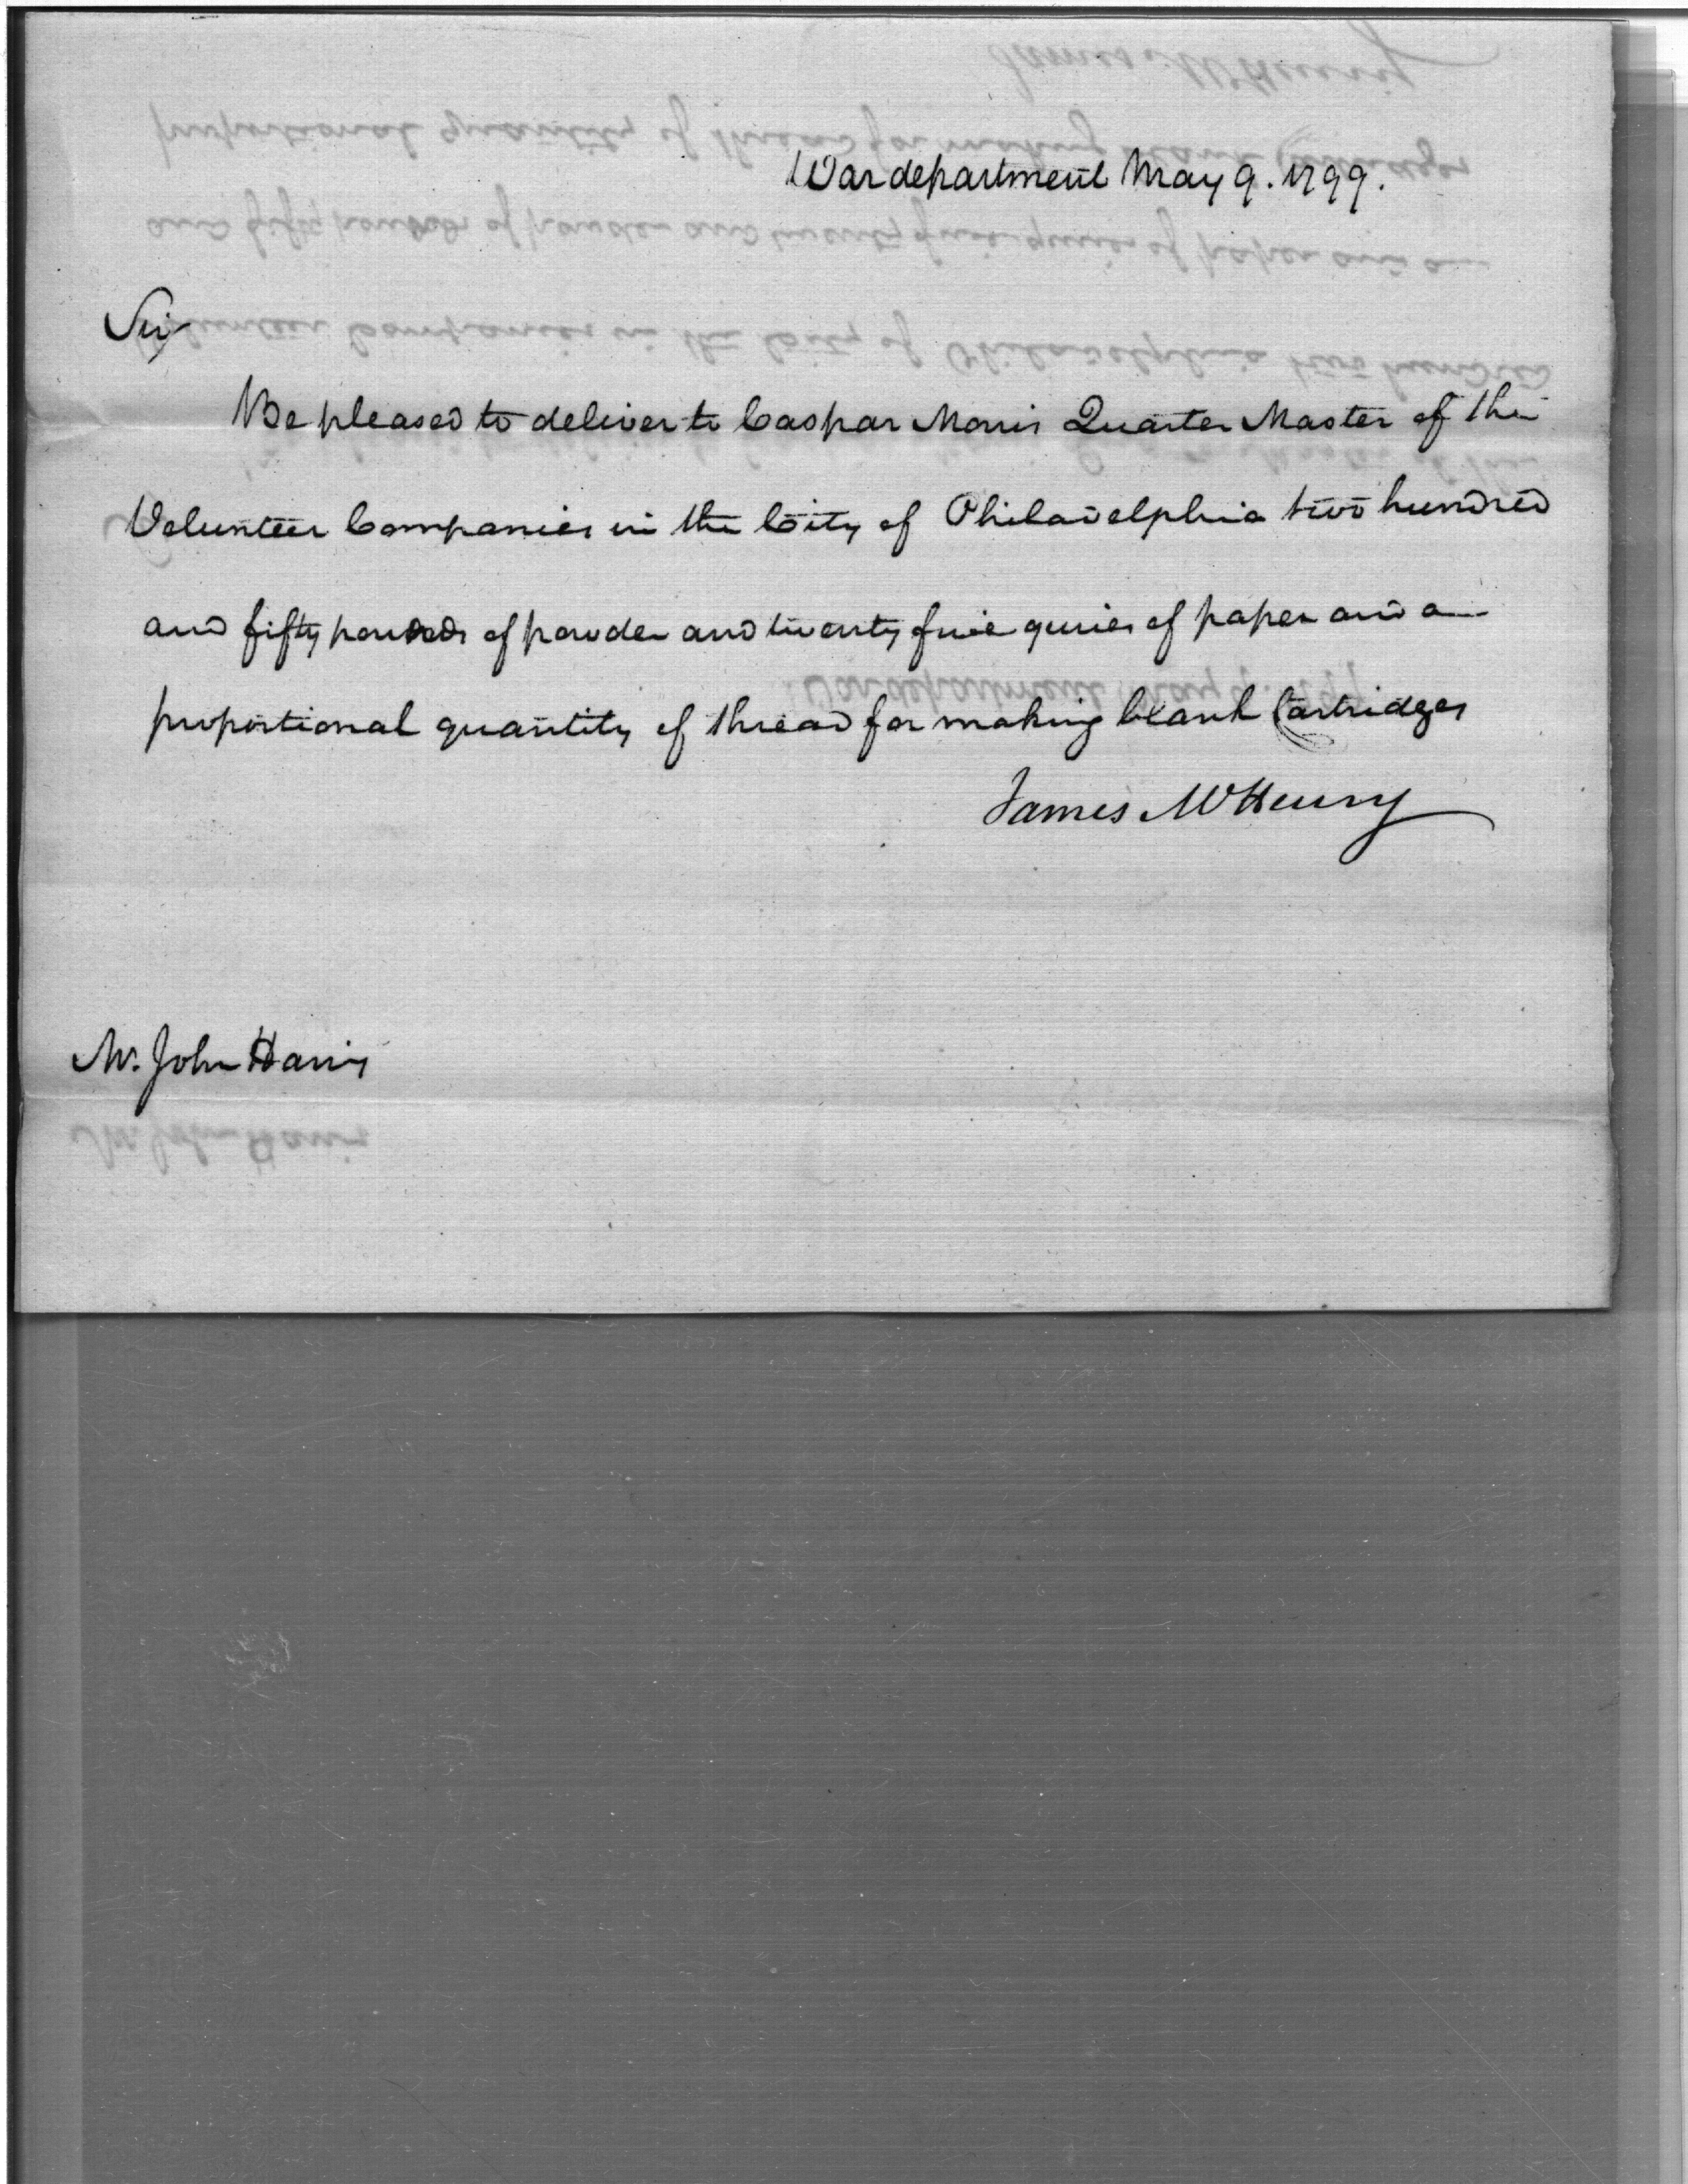 War department May 9. 1799.
Sir
Be pleased to deliver to Caspar Morris Quarter Master of the
Volunteer Companies in the City of Philadelphia two hundred
and fifty pounds of powder and twenty five quires of paper and a
proportional quantity of thread for making blank Cartridges
James McHenry
Mr. John Harris